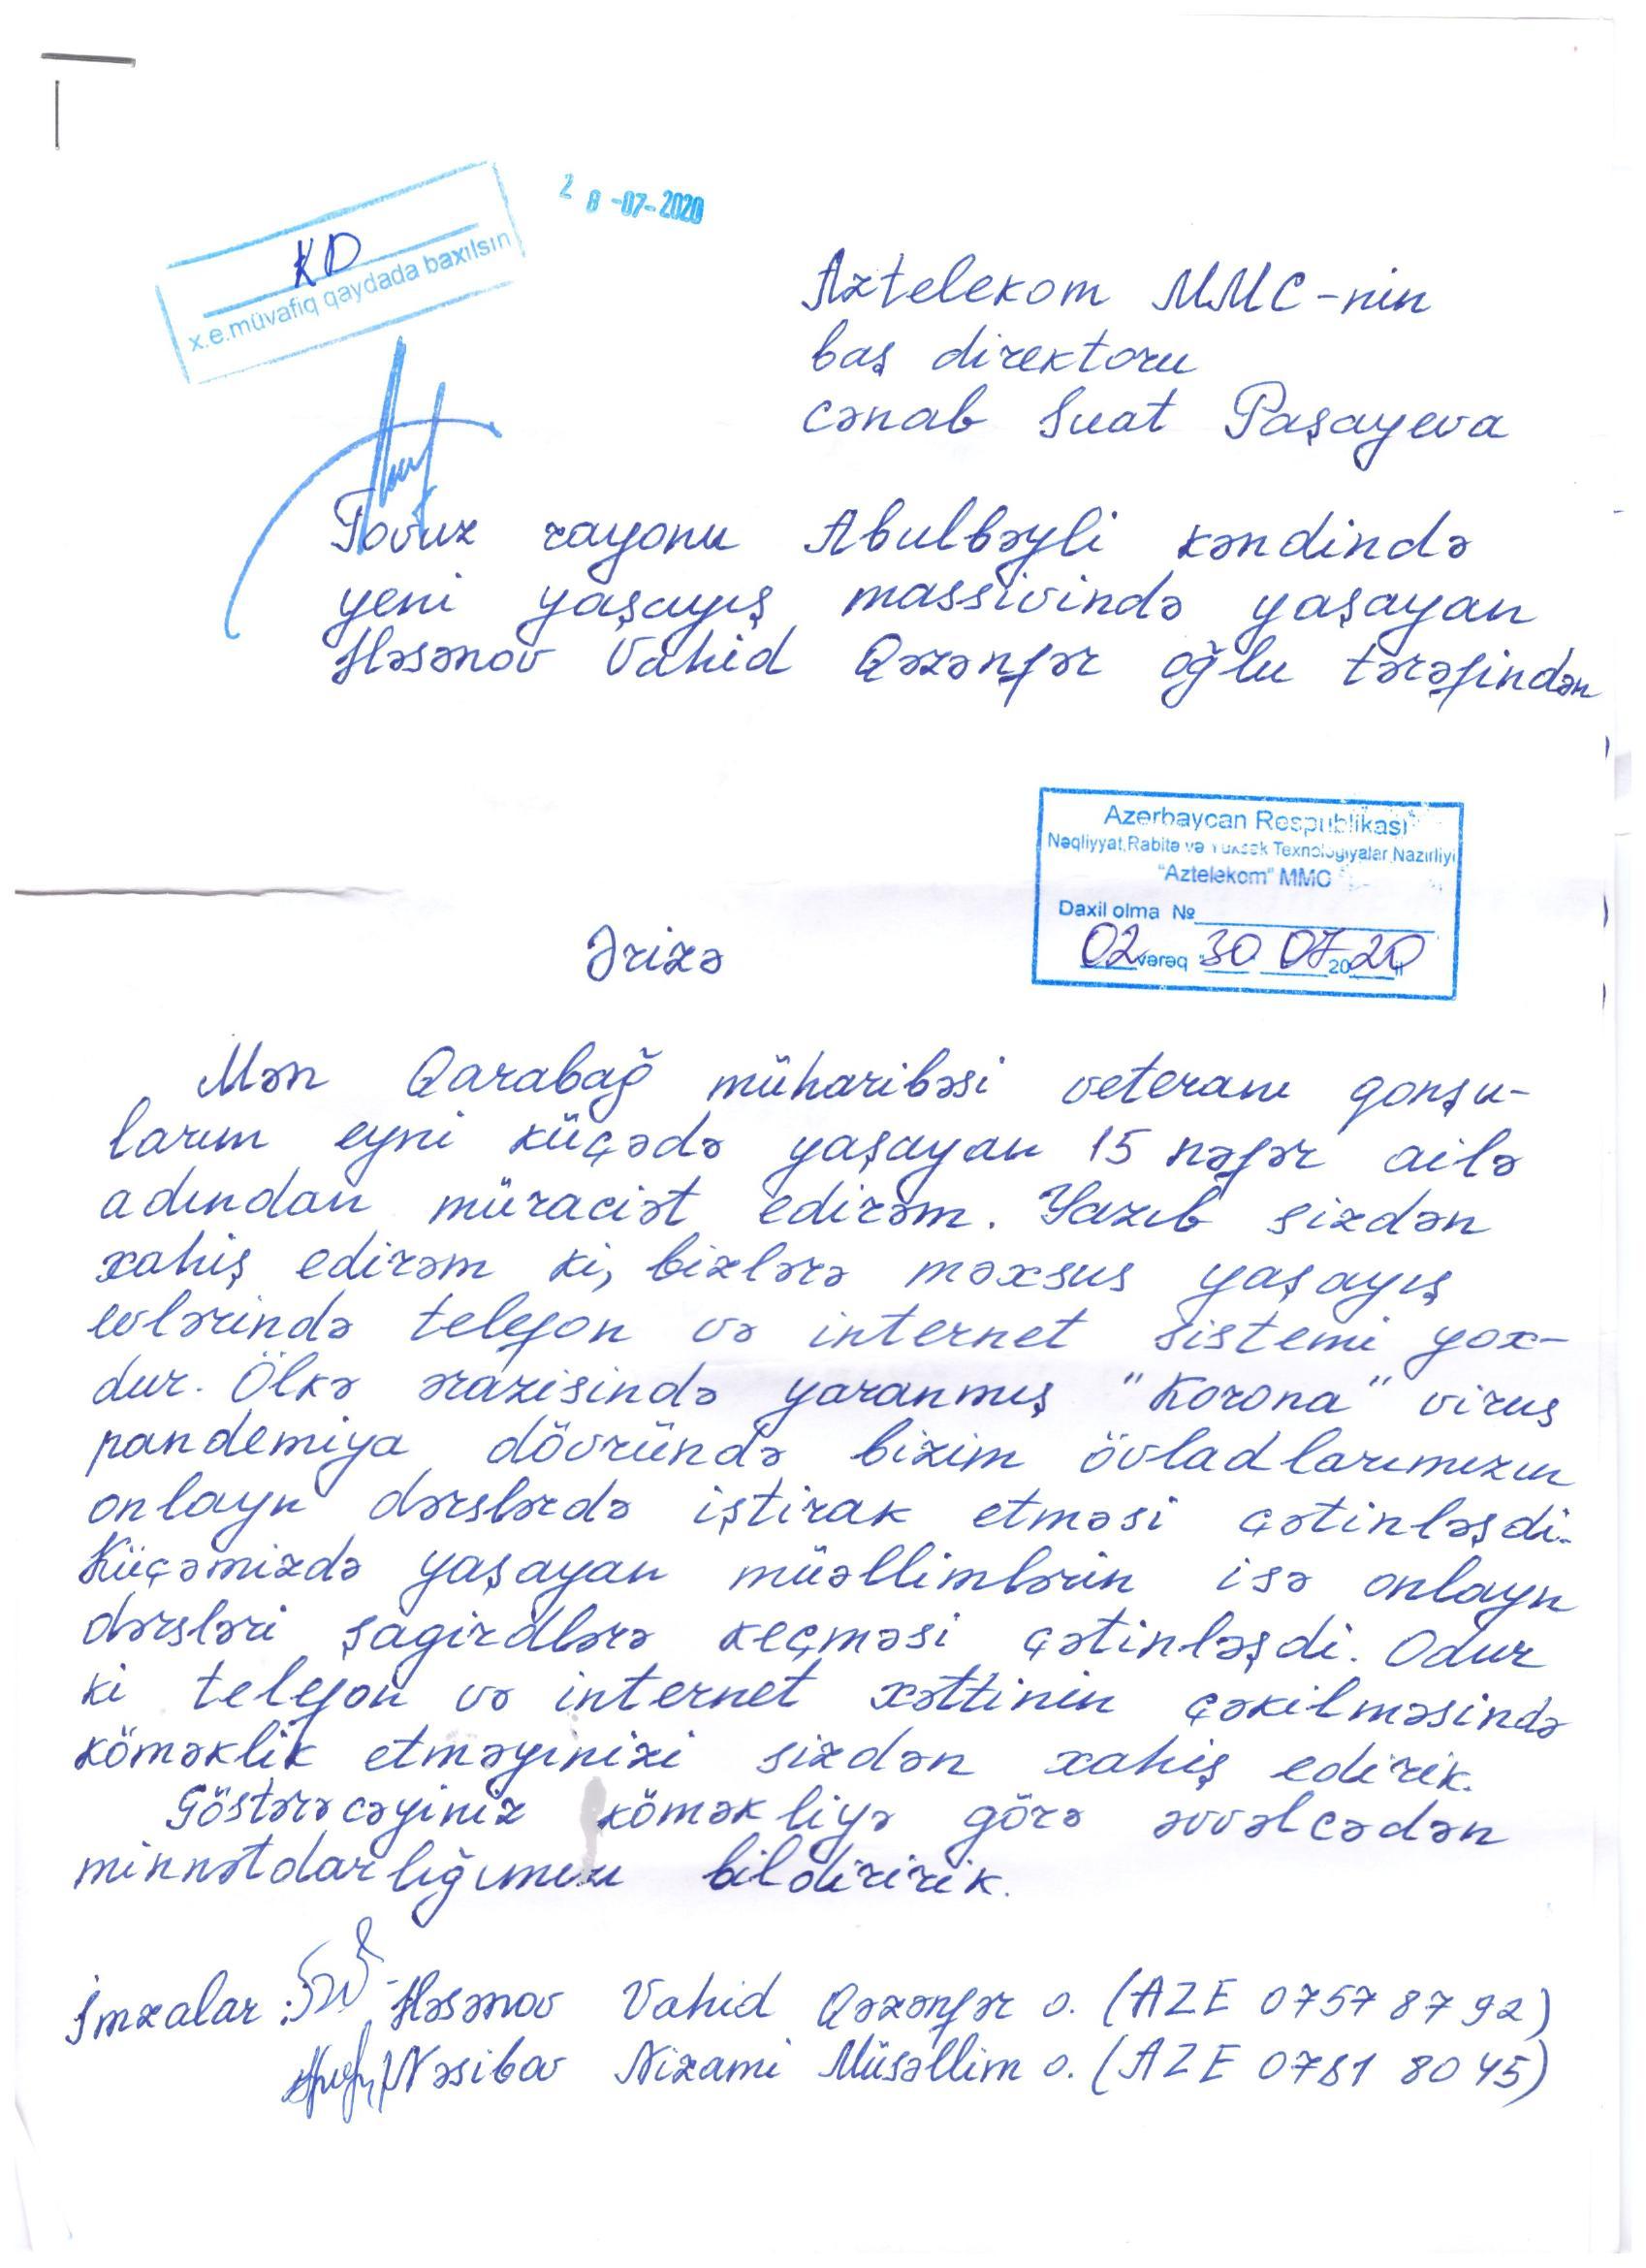 28-07-2020
KD
x.e.müvafiq qaydada baxılsın
Aztelekom MMC-nin
baş direktoru
cənab Suat Paşayeva
Tovuz rayonu Abulbəyli kəndində
yeni yaşayış massivində yaşayan
Həsənov Vahid Qəzənfər oğlu tərəfindən
Azərbaycan Respublikası
Nəqliyyat, Rabitə və Yüksək Texnologiyalar Nazirliyi
"Aztelekom" MMC
Daxil olma №
02 vərəq "30 07 2020 il
Ərizə
Mən Qarabağ müharibəsi veteranı qonşu-
larım eyni küçədə yaşayan 15 nəfər ailə
adından müraciət edirəm. Yazıb sizdən
xahiş edirəm ki, bizlərə məxsus yaşayış
evlərində telefon və internet sistemi yox-
dur. Ölkə ərazisində yaranmış "Korona" virus
pandemiya dövründə bizim övladlarımızın
onlayn dərslərdə iştirak etməsi çətinləşdi.
Küçəmizdə yaşayan müəllimlərin isə onlayn
dərsləri şagirdlərə keçməsi çətinləşdi. Odur
ki telefon və internet xəttinin çəkilməsində
köməklik etməyinizi sizdən xahiş edirik.
Göstərəcəyiniz köməkliyə görə əvvəlcədən
minnətdarlığımızı bildiririk.
İmzalar: Həsənov Vahid Qəzənfər o. (AZE 07578792)
Nəsibov Nizami Müsəllim o. (AZE 0781 8045)